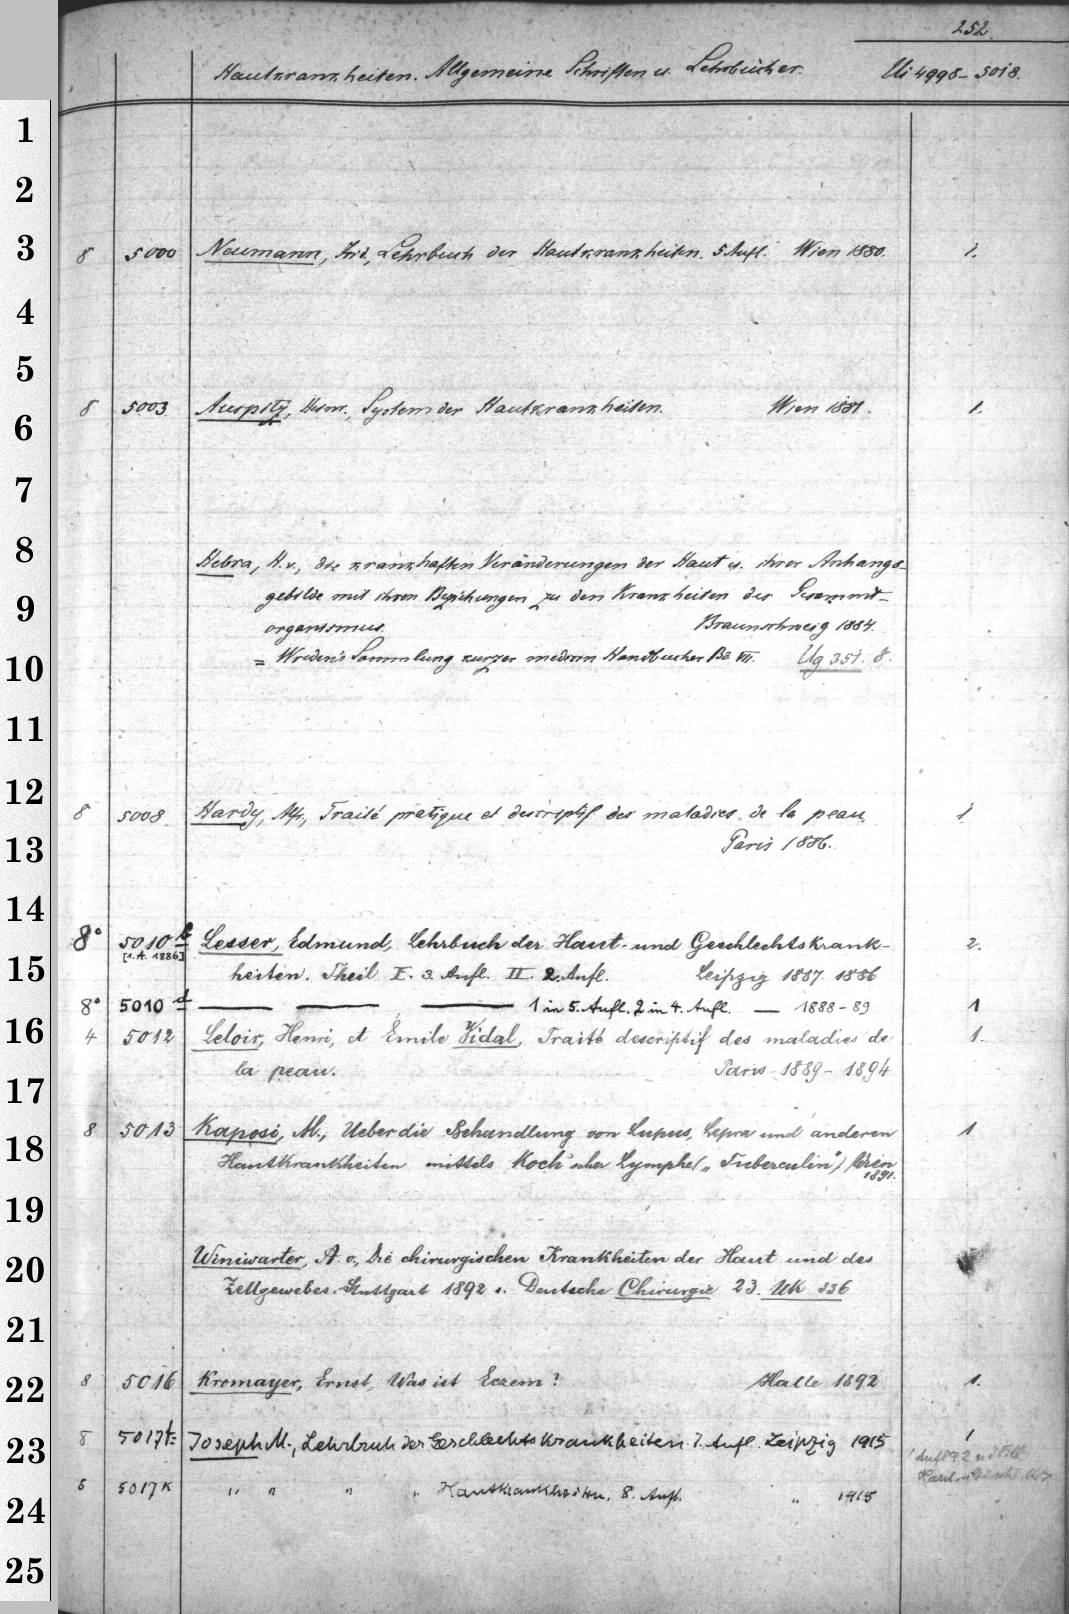 252.
Hautkrankheiten. Allgemeine Schriften u. Lehrbücher. Ui 4998-5018.
1
2
3
8 5000 Neumann, Isid., Lehrbuch der Hautkrankheiten. 5 Aufl. Wien 1880. 1.
4
5
8 5003 Auspitz, Heinr., System der Hautkrankheiten. Wien 1881. 1.
6
7
8
Hebra, H. v., die krankhaften Veränderungen der Haut u. ihrer Anhangs-
9
gebilde mit ihren Beziehungen zu den Krankheiten des Gesammt-
organismus. Braunschweig 1884.
10
= Wreden's Sammlung kurzer medicin Handbücher Bd VII. Ug 351. 8.
11
12
8 5008 Hardy, Alfr., Traité pratique et descriptif des maladies de la peau. 1
13
Paris 1886.
14
8° 5010 b Lesser, Edmund, Lehrbuch der Haut- und Geschlechtskrank- 2.
[1. A. 1886]
15
heiten. Theil I. 3. Aufl. II. 2. Aufl. Leipzig 1887. 1886
8° 5010 d — — — 1 in 5. Aufl. 2 in 4. Aufl. — 1888-89 1
16
4 5012 Leloir, Henri, et Émile Vidal, Traité descriptif des maladies de 1.
17
la peau. Paris 1889-1894
8 5013 Kaposi, M., Ueber die Behandlung von Lupus, Lepra und anderen 1
18
Hautkrankheiten mittels Koch'scher Lymphe („Tuberculin") Wien
1891.
19
Winiwarter, A. v., Die chirurgischen Krankheiten der Haut und des
20
Zellgewebes. Stuttgart 1892 s. Deutsche Chirurgie 23. Uk 336
21
22
8 5016 Kromayer, Ernst, Was ist Eczem? Halle 1892 1.
23
8 5017 Joseph M., Lehrbuch der Geschlechtskrankheiten. 7. Aufl. Leipzig 1915 1
8 5017 k " " " " Hautkrankheiten. 8. Aufl. " 1915
24
25